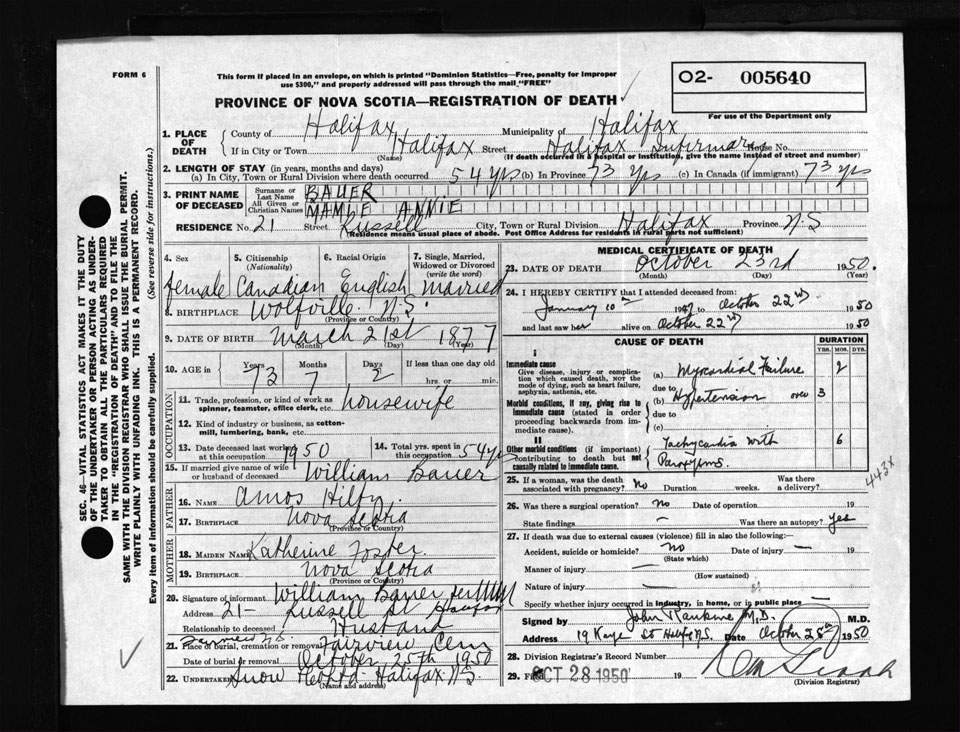 FORM 6
This form if placed in an envelope, on which is printed "Dominion Statistics—Free, penalty for improper
use $300," and properly addressed will pass through the mail "FREE"
02- 005640
For use of the Department only
PROVINCE OF NOVA SCOTIA—REGISTRATION OF DEATH
SEC. 46—VITAL STATISTICS ACT MAKES IT THE DUTY
OF THE UNDERTAKER OR PERSON ACTING AS UNDER-
TAKER TO OBTAIN ALL THE PARTICULARS REQUIRED
IN THE "REGISTRATION OF DEATH" AND TO FILE THE
SAME WITH THE DIVISION REGISTRAR WHO SHALL ISSUE THE BURIAL PERMIT.
WRITE PLAINLY WITH UNFADING INK. THIS IS A PERMANENT RECORD.
Every item of information should be carefully supplied. (See reverse side for instructions.)
1. PLACE OF DEATH
County of Halifax Municipality of Halifax
If in City or Town Halifax Street Halifax Infirmary House No.
(Name) (If death occurred in a hospital or institution, give the name instead of street and number)
2. LENGTH OF STAY (in years, months and days)
(a) In City, Town or Rural Division where death occurred 54 yrs (b) In Province 73 yrs (c) In Canada (if immigrant) 73 yrs
3. PRINT NAME OF DECEASED
Surname or Last Name BAUER
All Given or Christian Names MAMIE ANNIE
RESIDENCE No. 21 Street Russell City, Town or Rural Division Halifax Province N.S
(Residence means usual place of abode. Post Office Address for residents in rural parts not sufficient)
4. Sex
5. Citizenship (Nationality)
6. Racial Origin
7. Single, Married, Widowed or Divorced (write the word)
female Canadian English married
8. BIRTHPLACE Wolfville N.S.
(Province or Country)
9. DATE OF BIRTH March 21st 1877
(Month) (Day) (Year)
10. AGE in Years Months Days If less than one day old
73 7 2 hrs. or min.
OCCUPATION
11. Trade, profession, or kind of work as
spinner, teamster, office clerk, etc. housewife
12. Kind of industry or business, as cotton-
mill, lumbering, bank, etc.
13. Date deceased last worked at this occupation 1950
14. Total yrs. spent in this occupation 54 yrs
15. If married give name of wife or husband of deceased William Bauer
FATHER
16. NAME Amos Hilty
17. BIRTHPLACE Nova Scotia
(Province or Country)
MOTHER
18. MAIDEN NAME Katherine Foster
19. BIRTHPLACE Nova Scotia
(Province or Country)
20. Signature of informant William Bauer
Address 21- Russell St Halifax
Relationship to deceased Husband
Fairview N.S.
21. Place of burial, cremation or removal Fairview Cem
Date of burial or removal October 25th 1950
22. UNDERTAKER Snow Halifax N.S.
(Name and address)
MEDICAL CERTIFICATE OF DEATH
23. DATE OF DEATH October 23rd 1950.
(Month) (Day) (Year)
24. I HEREBY CERTIFY that I attended deceased from:
January 10 1947 to October 22nd 1950
and last saw her alive on October 22nd 1950
CAUSE OF DEATH
DURATION
YRS. MOS. DYS.
I
Immediate cause
Give disease, injury or compli-
cation which caused death, not the
mode of dying, such as heart failure,
asphyxia, asthenia, etc.
(a) Myocardial Failure 2
due to
(b) Hypertension over 3
Morbid conditions, if any, giving rise to
immediate cause (stated in order
proceeding backwards from im-
mediate cause).
due to
(c)
II
Other morbid conditions (if important)
contributing to death but not
causally related to immediate cause.
Tachycardia with 6
Paroxysms.
443X
25. If a woman, was the death associated with pregnancy? No Duration weeks. Was there a delivery?
26. Was there a surgical operation? No Date of operation 19
State findings — Was there an autopsy? Yes
27. If death was due to external causes (violence) fill in also the following:—
Accident, suicide or homicide? No Date of injury — 19
(State which)
Manner of injury —
(How sustained)
Nature of injury —
Specify whether injury occurred in industry, in home, or in public place —
Signed by John Rankine M.D. M.D.
Address 19 Kaye St Hfx N.S. Date October 25th 1950
28. Division Registrar's Record Number
29. Filed OCT 28 1950 19
(Division Registrar)